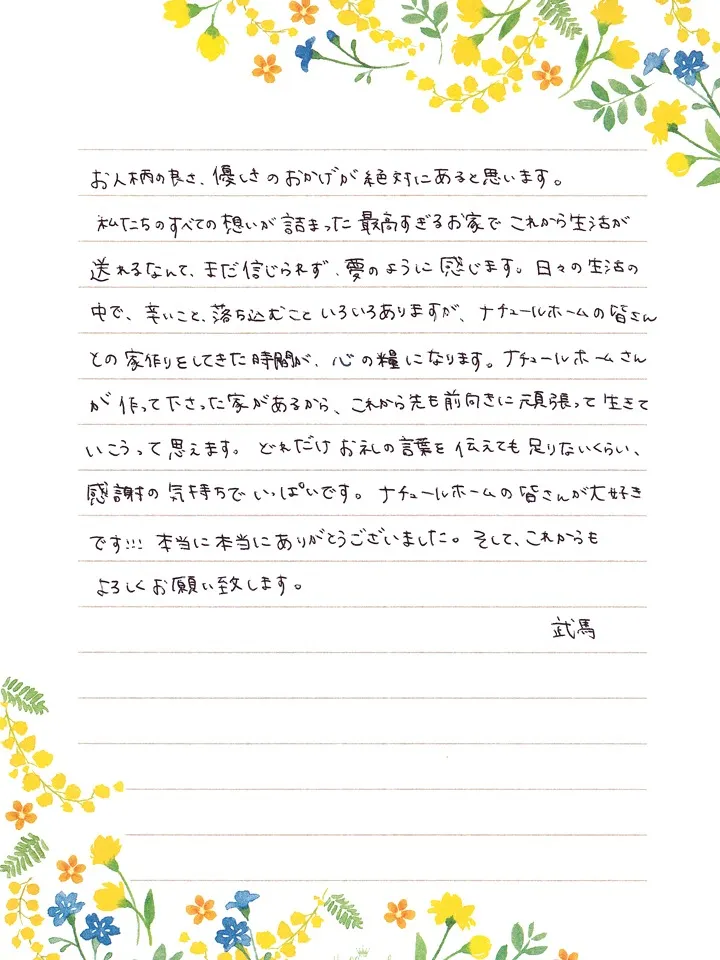 お人柄の良さ、優しさのおかげが絶対にあると思います。
私たちのすべての想いが詰まった最高すぎるお家でこれから生活が
送れるなんて、まだ信じられず、夢のように感じます。日々の生活の
中で、辛いこと、落ち込むこといろいろありますが、ナチュールホームの皆さん
との家作りをしてきた時間が、心の糧になります。ナチュールホームさん
が作って下さった家があるから、これから先も前向きに頑張って生きて
いこうって思えます。どれだけお礼の言葉を伝えても足りないくらい、
感謝の気持ちでいっぱいです。ナチュールホームの皆さんが大好き
です!!! 本当に本当にありがとうございました。そして、これからも
よろしくお願い致します。
武馬